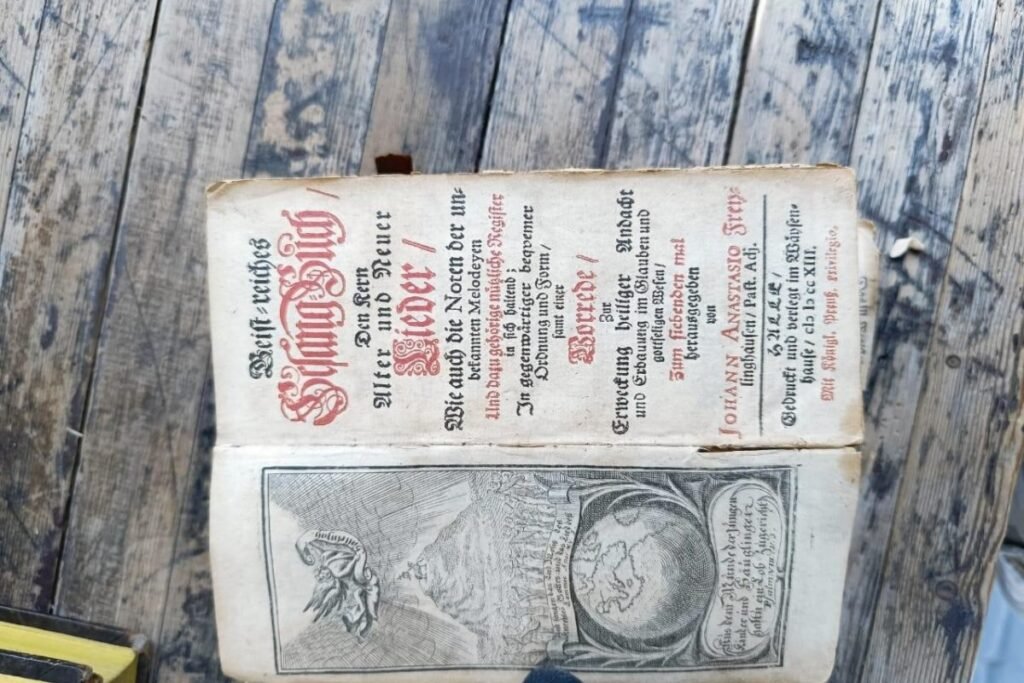 Geist=reiches
Gesang=Buch/
Den Kern
Alter und Neuer
Lieder/
Wie auch die Noten der un=
bekannten Melodeyen
Und dazu gehörige nützliche Register
in sich haltend;
In gegenwärtiger beqvemer
Ordnung und Form/
samt einer
Vorrede/
Zur
Erweckung heiliger Andacht
und Erbauung im Glauben und
gottseligen Wesen/
Zum siebenden mal
herausgegeben
von
JOHANN ANASTASIO Frey=
linghausen/ Past. Adj.
HALLE/
Gedruckt und verlegt im Wäysen=
hause/ MDCCXIII.
Mit Königl. Preuß. Privilegio.
Aus dem Munde der Jungen
Kinder und Säuglingen
hastu ein Lob zugericht
Psalm